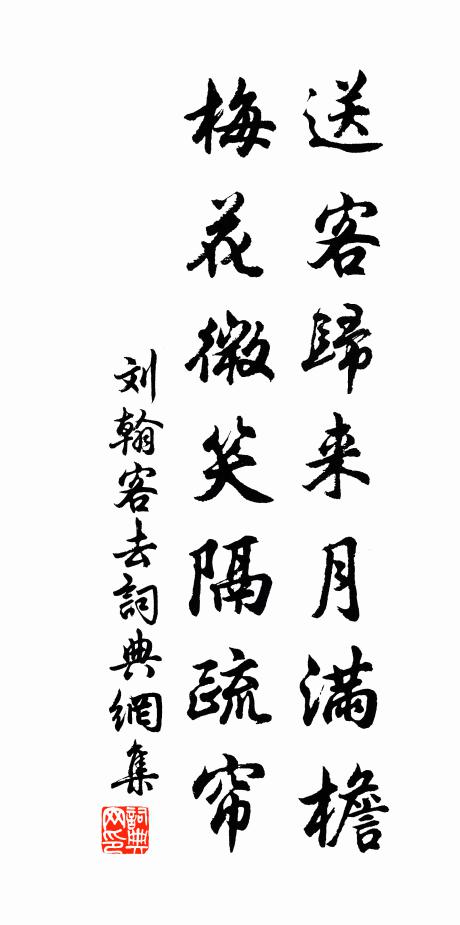 送客歸来月满檐
梅花微笑隔疏帘
刘翰客去詞典網集
詞典網印